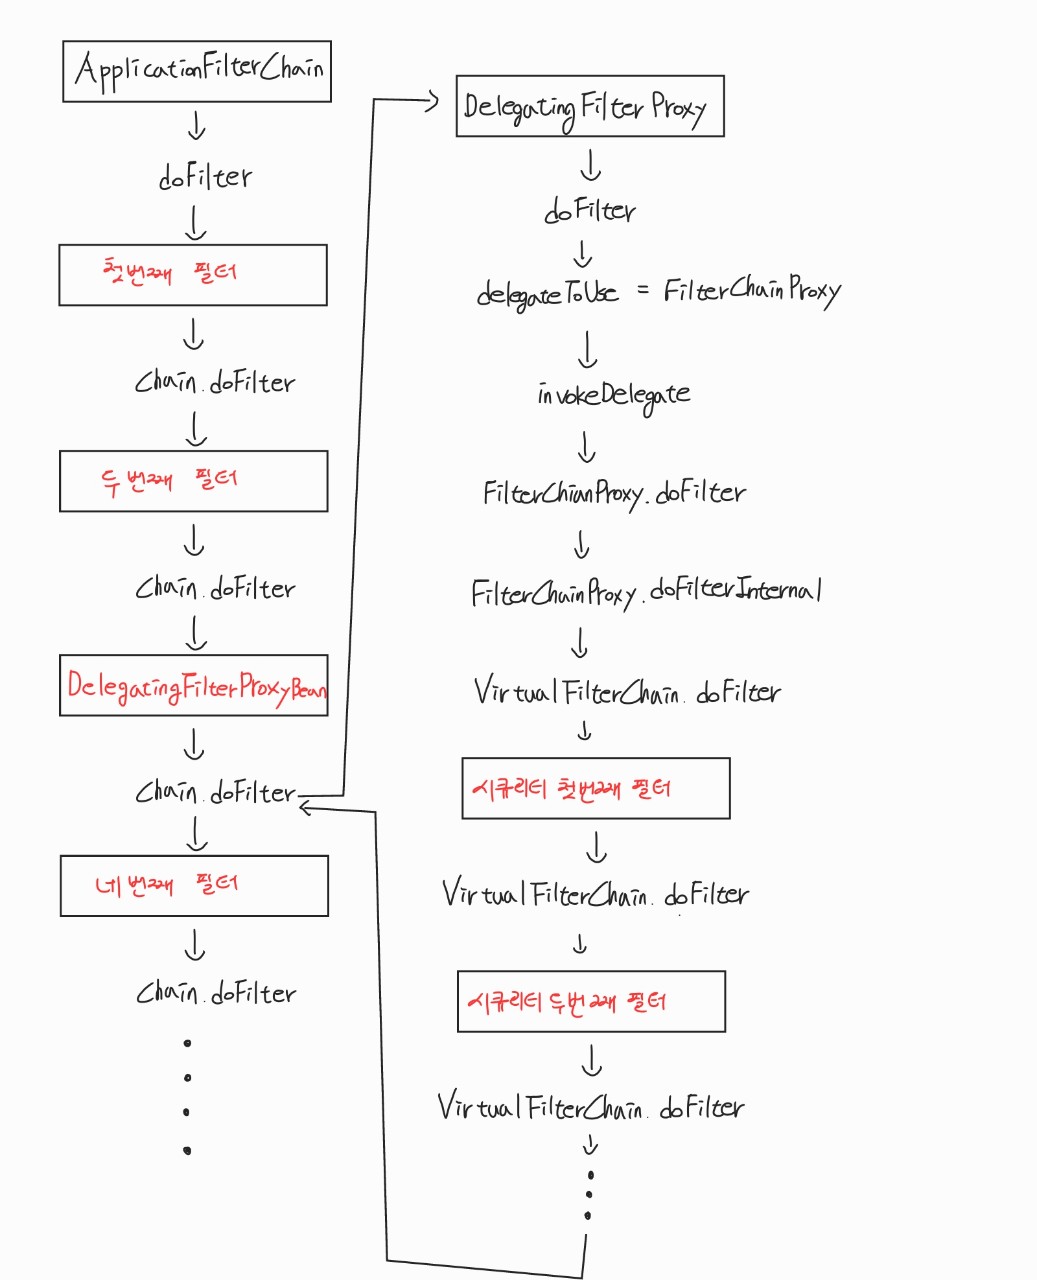 ApplicationFilterChain
doFilter
첫번째 필터
Chain.doFilter
두번째 필터
Chain.doFilter
DelegatingFilterProxyBean
Chain.doFilter
네번째 필터
Chain.doFilter
DelegatingFilterProxy
doFilter
delegateToUse = FilterChainProxy
invokeDelegate
FilterChianProxy.doFilter
FilterChainProxy.doFilterInternal
VirtualFilterChain.doFilter
시큐리티 첫번째 필터
VirtualFilterChain.doFilter
시큐리티 두번째 필터
VirtualFilterChain.doFilter